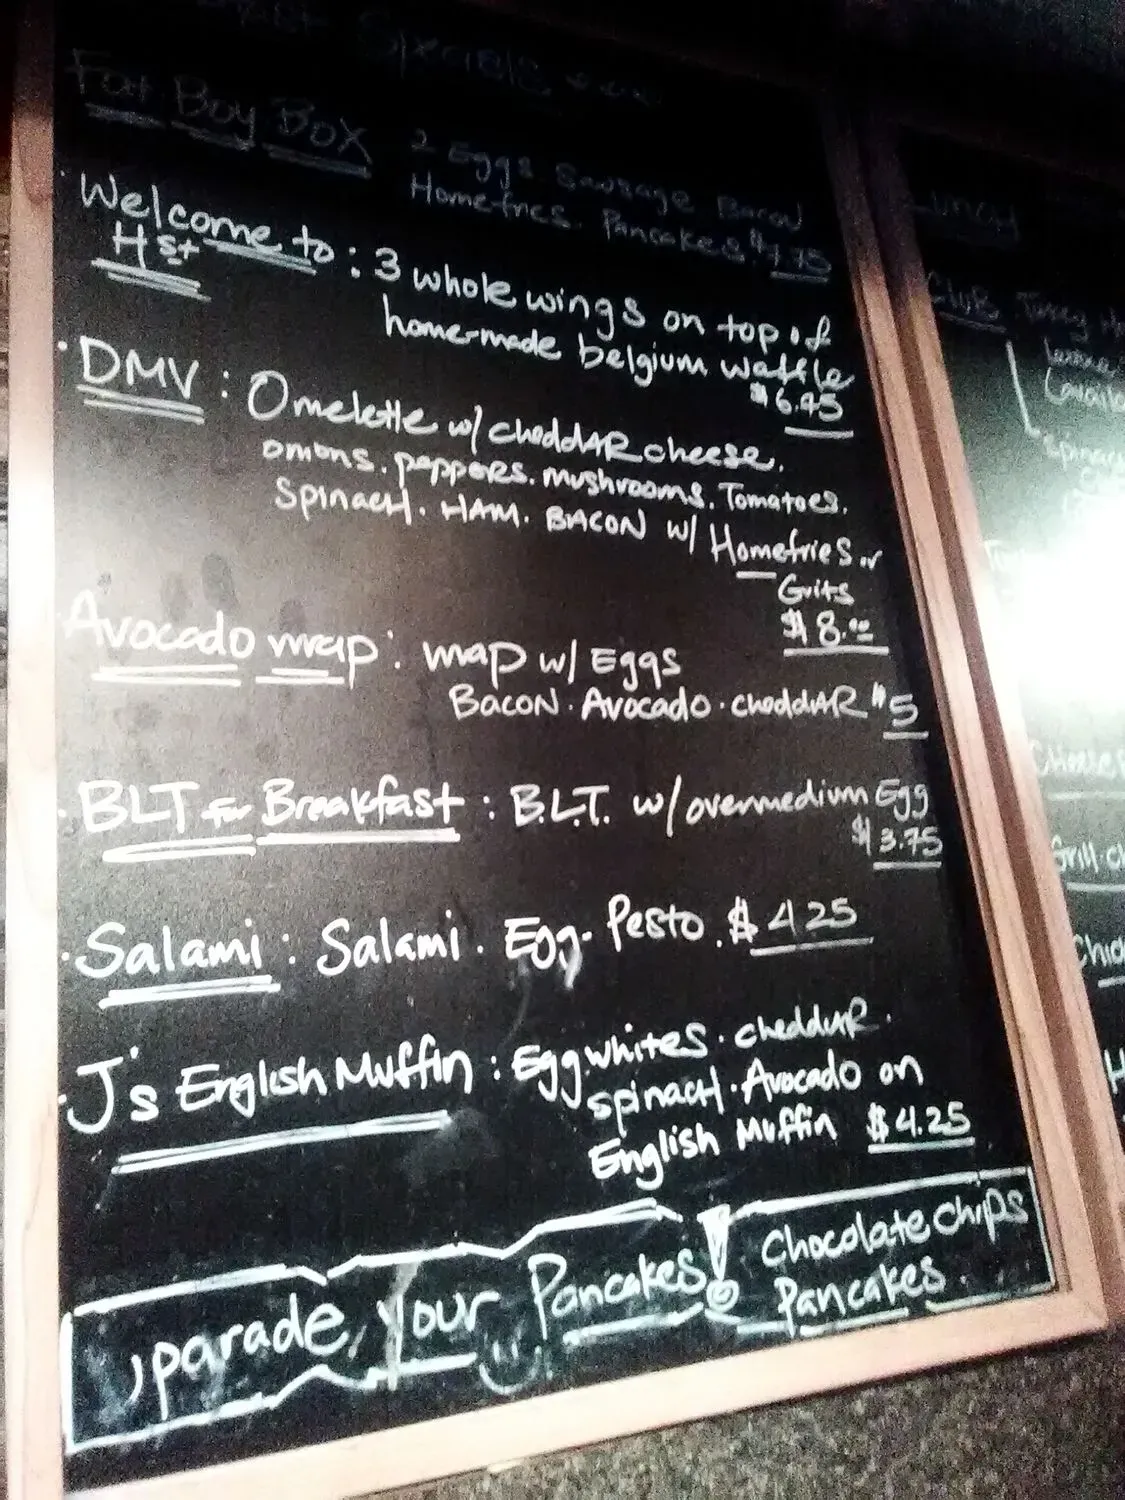 Specials
Fat Boy Box 2 Eggs Sausage Bacon
Homefries. Pancakes $4.75
Welcome to : 3 whole wings on top of
H st
home-made belgium waffle
$6.45
DMV : Omelette w/ cheddAR cheese.
onions. peppers. mushrooms. Tomatoes.
Spinach. HAM. BACON w/ Homefries or
Grits
$8.00
Avocado wrap : wrap w/ Eggs
Bacon. Avocado. cheddAR $5
BLT for Breakfast : B.L.T. w/ overmedium Egg
$3.75
Salami : Salami. Egg. Pesto. $4.25
J's English Muffin : Egg whites. cheddar.
spinach. Avocado on
English Muffin $4.25
uparade your Pancakes! Chocolate chips
Pancakes.
Lunch
Club Turkey
Spinach
Cheese
Grill